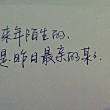 来年陌生的、
是昨日最亲的某某